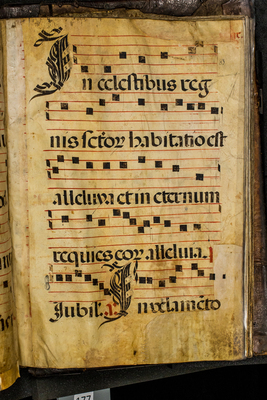 In celestibus reg
nis sctor habitatio est
alleluya et in eternum
requies eor alleluia.
Jubil. a. In velamēto
177